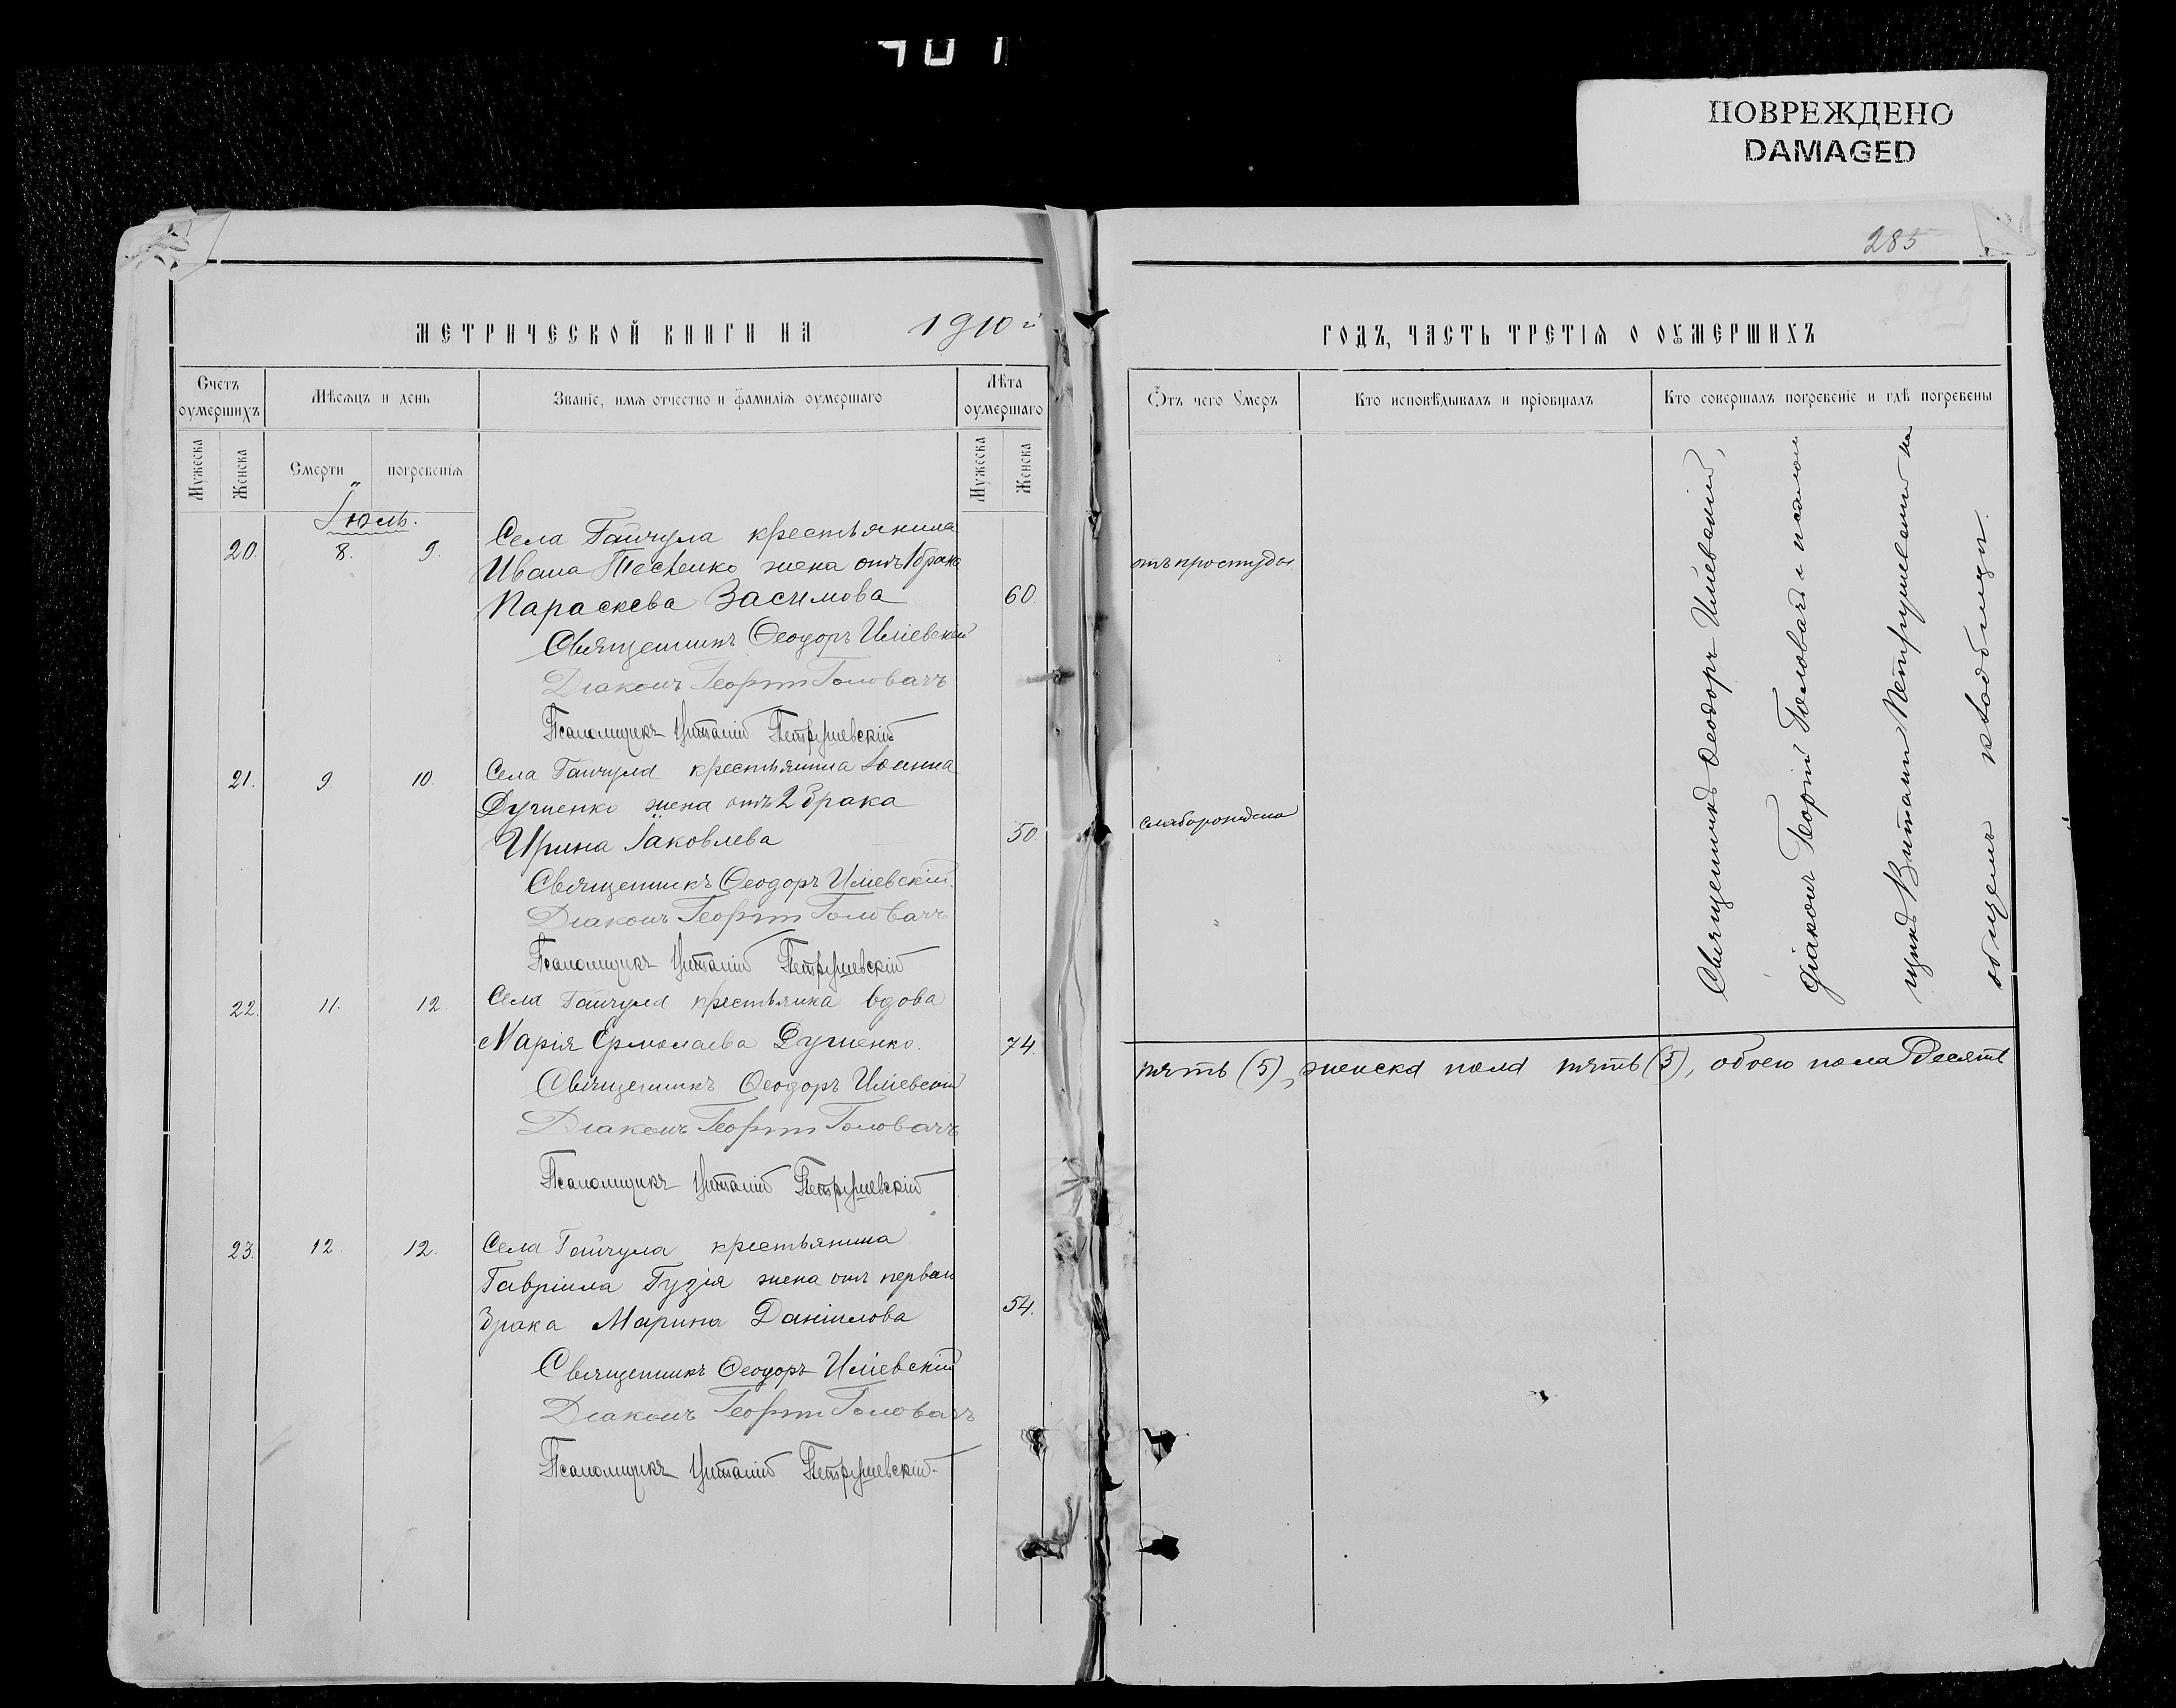 ПОВРЕЖДЕНО
DAMAGED
285
МЕТРИЧЕСКОЙ КНИГИ НА 1910 й
Счетъ оумершихъ
Мѣсяцъ и день
Званіе, имя отчество и фамилія оумершаго
Лѣта оумершаго
Мужеска
Женска
Смерти
погребенія
Мужеска
Женска
Іюль.
20. 8. 9. Села Гайчула крестьянина
Ивана Тесленко жена отъ 1 брака
Параскева Засимова 60.
Священникъ Ѳеодоръ Иліевскій
Діаконъ Георгій Головачъ
Псаломщикъ Виталій Петрушевскій
21. 9 10. Села Гайчула крестьянина Іоанна
Дученко жена отъ 2 брака
Ирина Іаковлева 50
Священникъ Ѳеодоръ Иліевскій
Діаконъ Георгій Головачъ
Псаломщикъ Виталій Петрушевскій
22. 11. 12. Села Гайчула крестьянка вдова
Марія Ермолаева Дученко. 74.
Священникъ Ѳеодоръ Иліевскій
Діаконъ Георгій Головачъ
Псаломщикъ Виталій Петрушевскій
23. 12. 12. Села Гайчула крестьянина
Гавріила Гузія жена отъ перваго
брака Марина Даніилова 54.
Священникъ Ѳеодоръ Иліевскій
Діаконъ Георгій Головачъ
Псаломщикъ Виталій Петрушевскій
ГОДЪ, ЧАСТЬ ТРЕТІЯ О ОУМЕРШИХЪ
Отъ чего Умеръ
Кто исповѣдывалъ и пріобщалъ
Кто совершалъ погребеніе и гдѣ погребены
отъ простуды
слаборождена
Священникъ Ѳеодоръ Иліевскій,
діаконъ Георгій Головачъ и псалом
щикъ Виталій Петрушевскій на
общемъ кладбищѣ.
пять (5), женска пола пять (5), обоего пола десять